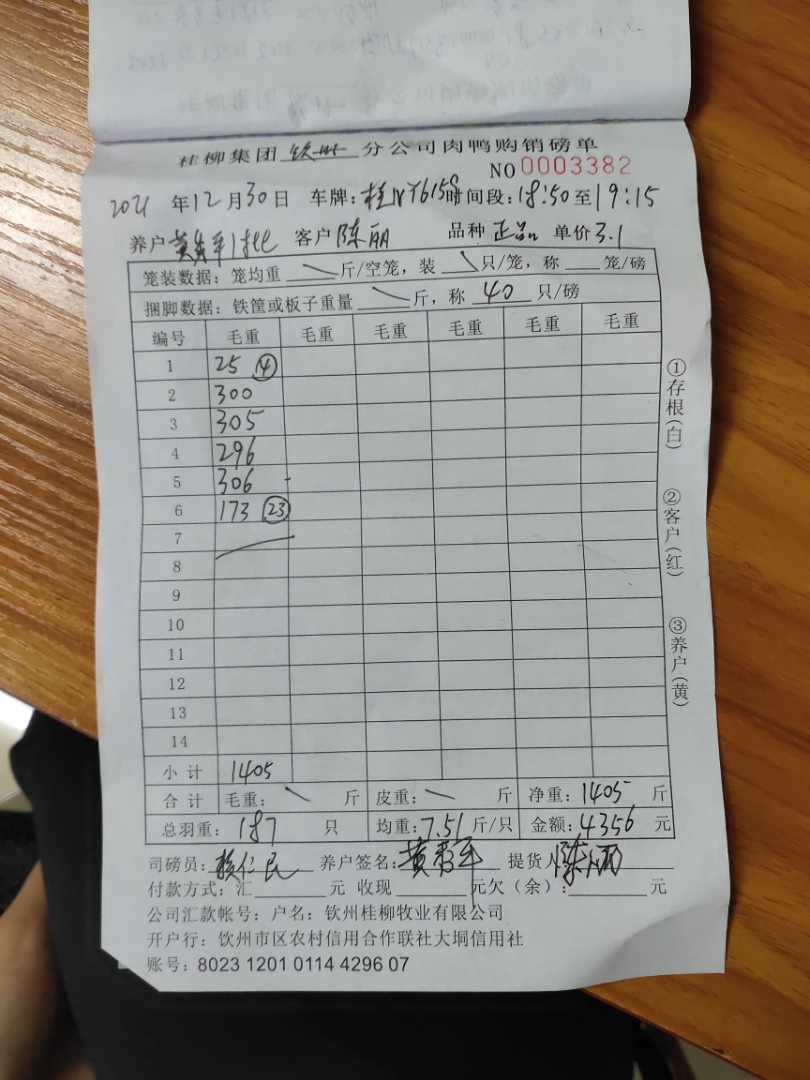 桂柳集团 钦州 分公司肉鸭购销磅单
NO 0003382
2021 年 12 月 30 日 车牌: 桂NY6158 时间段: 18:50 至 19:15
养户 黄秀军1批 客户 陈丽 品种 正品 单价 3.1
笼装数据: 笼均重 \ 斤/空笼, 装 \ 只/笼, 称 笼/磅
捆脚数据: 铁筐或板子重量 \ 斤, 称 40 只/磅
编号 毛重 毛重 毛重 毛重 毛重 毛重
1 25 ④
2 300
3 305
4 296
5 306
6 173 ㉓
7
8
9
10
11
12
13
14
小计 1405
合计 毛重: \ 斤 皮重: \ 斤 净重: 1405 斤
总羽重: 187 只 均重: 7.51 斤/只 金额: 4356 元
司磅员: 仁民 养户签名: 黄秀军 提货人 陈丽
付款方式: 汇 元 收现 元欠(余): 元
公司汇款帐号: 户名: 钦州桂柳牧业有限公司
开户行: 钦州市区农村信用合作联社大垌信用社
账号: 8023 1201 0114 4296 07
①存根(白)
②客户(红)
③养户(黄)